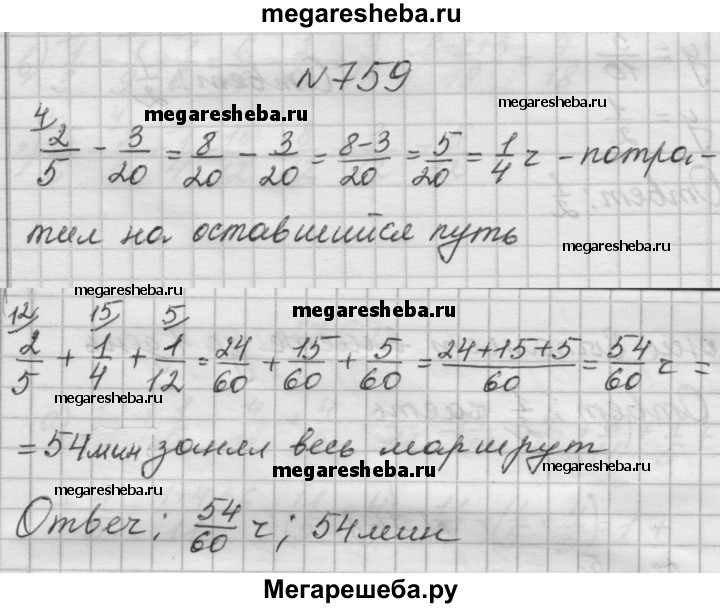 megaresheba.ru
N759
megaresheba.ru megaresheba.ru
4/ 2/5 - 3/20 = 8/20 - 3/20 = 8-3/20 = 5/20 = 1/4 ч - потра-
тил на оставшийся путь
megaresheba.ru
megaresheba.ru
12/ 15/ 5/ megaresheba.ru
2/5 + 1/4 + 1/12 = 24/60 + 15/60 + 5/60 = 24+15+5/60 = 54/60 ч =
megaresheba.ru
= 54 мин занял весь маршрут
megaresheba.ru megaresheba.ru
megaresheba.ru
Ответ; 54/60 ч; 54 мин
Мегарешеба.ру